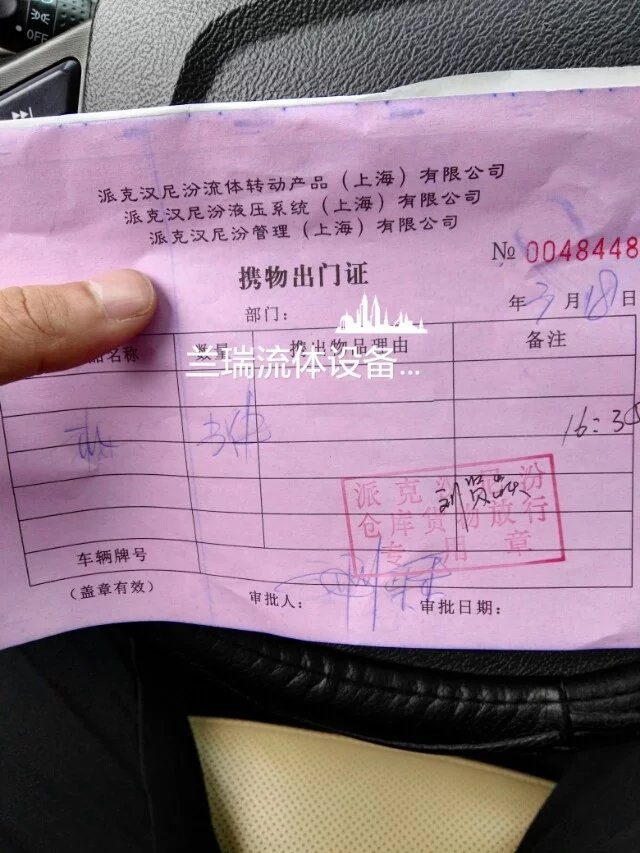 OFF
派克汉尼汾流体转动产品（上海）有限公司
派克汉尼汾液压系统（上海）有限公司
派克汉尼汾管理（上海）有限公司
№ 0048448
携物出门证
部门：
年 3 月 18 日
品名称 数量 携出物品理由 备注
兰瑞流体设备...
16:30
派克汉尼汾
仓库货物放行
专用章
车辆牌号
（盖章有效）
审批人： 审批日期：